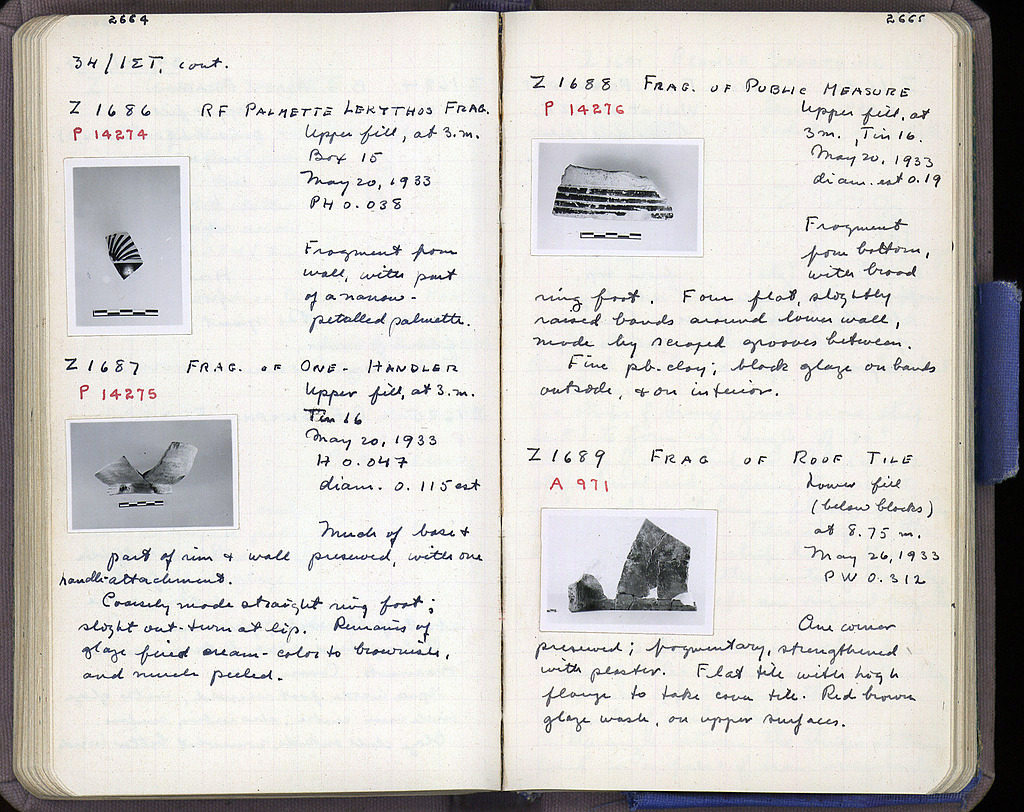 2664
34/ΙΣΤ, cont.
Z 1686 RF PALMETTE LEKYTHOS FRAG.
P 14274
Upper fill, at 3.m.
Box 15
May 20, 1933
PH 0.038
Fragment from
wall, with part
of a narrow-
petalled palmette.
Z 1687 FRAG. OF ONE-HANDLER
P 14275
Upper fill, at 3.m.
Tin 16
May 20, 1933
H 0.047
diam. 0.115 est
Much of base &
part of rim & wall preserved, with one
handle-attachment.
Coarsely made straight ring foot;
slight out-turn at lip. Remains of
glaze fired cream-color to brownish,
and much peeled.
2665
Z 1688 FRAG. OF PUBLIC MEASURE
P 14276
Upper fill, at
3m. Tin 16.
May 20, 1933
diam. est 0.19
Fragment
from bottom,
with broad
ring foot. Four flat, slightly
raised bands around lower wall,
made by scraped grooves between.
Fine pb. clay; black glaze on bands
outside, & on interior.
Z 1689 FRAG OF ROOF TILE
A 971
Lower fill
(below blocks)
at 8.75 m.
May 26, 1933
PW 0.312
One corner
preserved; fragmentary, strengthened
with plaster. Flat tile with high
flange to take cover tile. Red brown
glaze wash, on upper surfaces.